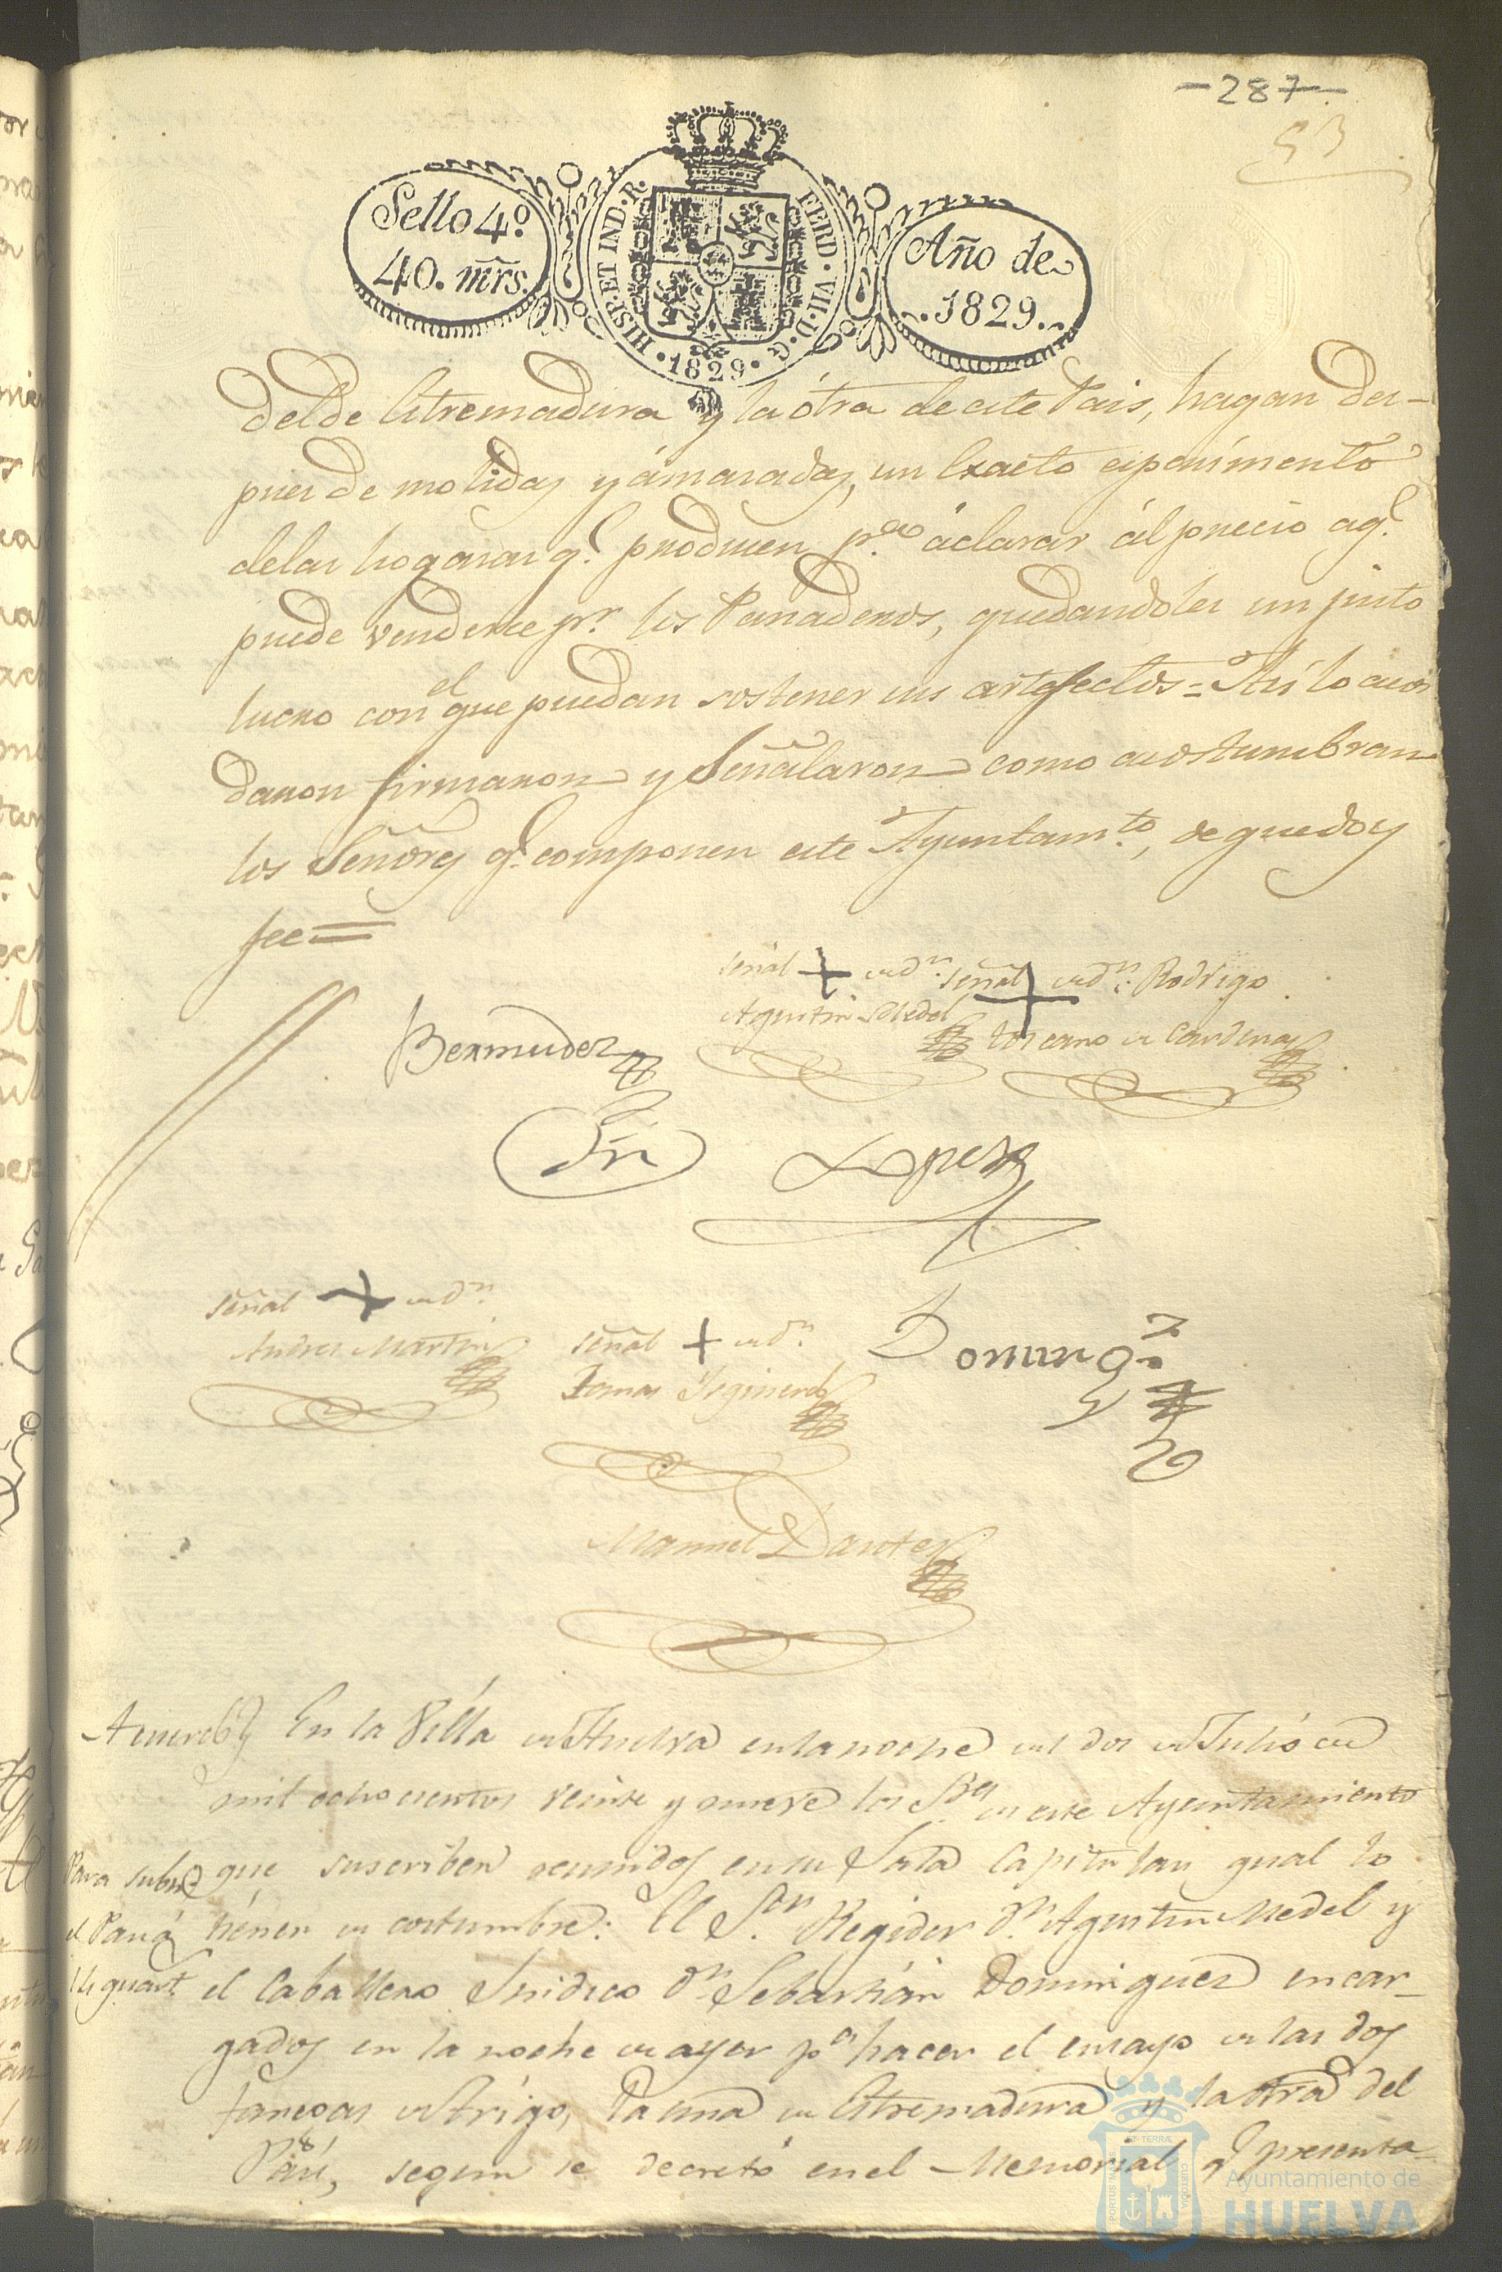 -287-
53
Sello 4º.
40. mrs.
HISP. ET IND. R. FERD. VII. D. G.
1829.
Año de
1829.
del de Estremadura y la ótra de este Pais, hagan des-
pues de molidas y ámasadas, un Exacto esperimento
de las hogasas q.e producen p.a áclarar ál precio aq.e
puede venderse p.r los Panaderos, quedandoles un justo
el
lucro con que puedan sostener sus artefectos = Así lo acor
daron firmaron y Señalaron como acostumbran
los Señores q.e componen este Ayuntam.to, de que doy
fee =
señal + de D.n
Agustin Medel
señal + de D.n Rodrigo
Toscano de Cardenas
Bermudez
Lopez
señal + de D.n
Andres Martin
señal + de D.n
Tomas
Doming.z
Manuel Dantes
Acuerdo En la Villa de Huelva en la noche del dos de Julio de
mil ochocientos veinte y nueve los S.res de este Ayuntamiento
Para subir que suscriben reunidos en su Sala Capitular qual lo
el Pan á tienen de costumbre: El S.or Regidor D.n Agustin Medel y
11 quart.s el Caballero Sindico D.n Sebastián Dominguez encar-
gados en la noche de ayer p.a hacer el ensayo de las dos
fanegas de trigo, la una de Estremadura y la otra del
País, segun se decretó en el Memorial q.e presenta-
PORTUS MARIS ET TERRÆ CUSTODIA
Ayuntamiento de
HUELVA